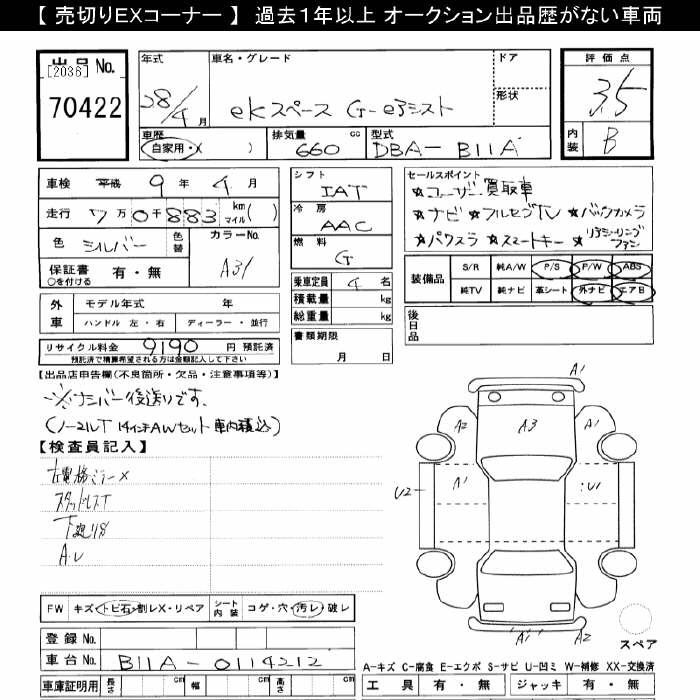 【 売切りEXコーナー 】 過去1年以上 オークション出品歴がない車両
出品No.
[2036]
70422
年式
28/4月
車名・グレード
eKスペース G-eアシスト
ドア
形状
評価点
3.5
内装
B
車歴
自家用・X ( )
排気量 cc
660
型式
DBA-B11A
車検 平成 9年 4月
走行 7万0千883 km マイル( )
色 シルバー
色替
カラーNo. A31
保証書 有・無
○を付ける
シフト
IAT
冷房
AAC
燃料
G
セールスポイント
☆ユーザー買取車
☆ナビ ☆フルセグTV ☆バックカメラ
☆パワスラ ☆スマートキー ☆リアシーリングファン
装備品
S/R 純A/W P/S P/W ABS
純TV 純ナビ 革シート 外ナビ エアB
乗車定員 4名
積載量 kg
総重量 kg
外車
モデル年式 年
ハンドル 左・右 ディーラー・並行
後日品
書類期限
月 日
リサイクル料金 9190 円 預託済
預託済で精算希望される方は金額記入して下さい
【出品店申告欄(不良箇所・欠品・注意事項等)】
※ナンバー後送りです。
(ノーマルT 14インチAWセット 車内積込)
【検査員記入】
左電格ミラーX
スタッドレスT
下廻りS
A.U
A1
A2
A3
A1
A1
U2
A1
U1
A1
A2
スペア
FW キズ・トビ石・割レX・リペア
シート内装 コゲ・穴・汚レ・破レ
登録No.
車台No. B11A-0114212
車庫証明用 長さ cm 幅 cm 高さ cm
A-キズ C-腐食 E-エクボ S-サビ U-凹ミ W-補修 XX-交換済
工具 有・無 ジャッキ 有・無